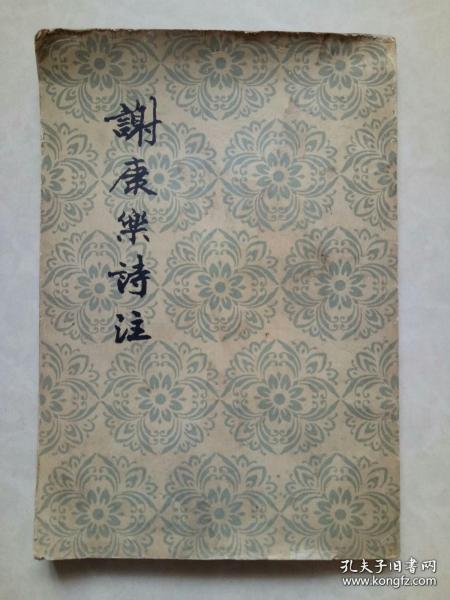 謝康樂詩注
孔夫子旧书网
www.kongfz.com